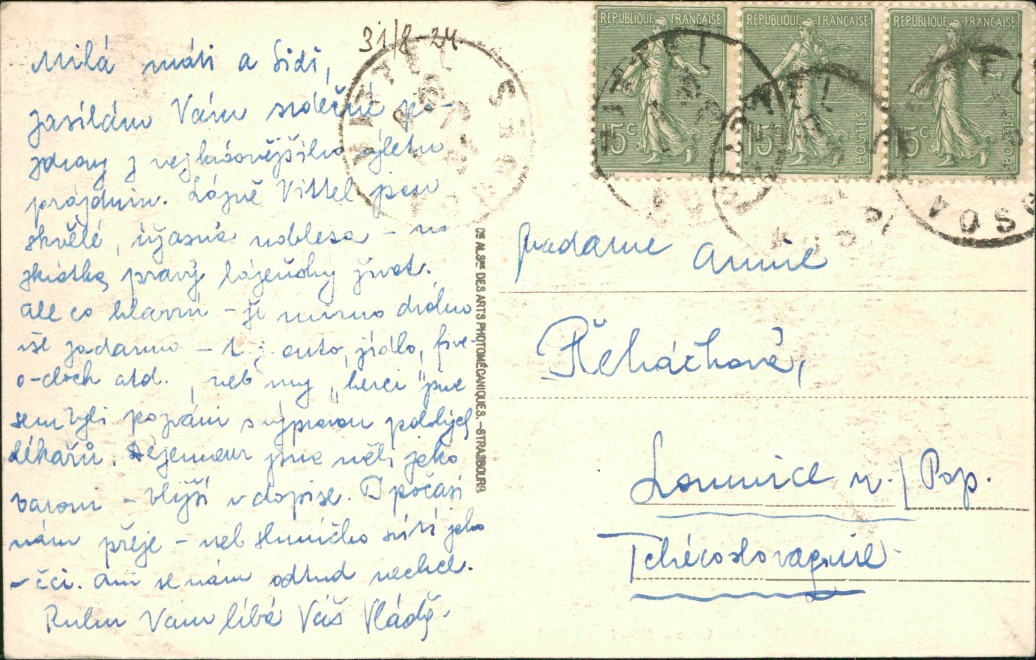 31/8 24
Milá máti a Sidi,
zasílám Vám srdečné po-
zdravy z nejkrásnějšího výletu
prázdnin. Lázně Vittel jsou
skvělé, úžasná noblesa – no
zkrátka, pravý lázeňský život.
Ale co hlavní – je mimo drobno
vše zadarmo – t. j. auto, jídlo, five-
o-cloch atd., neb my, "herci" jsme
sem byli pozváni s výpravou polských
lékařů. Déjeuneur jsme měli jako
baroni – bližší v dopise. I počasí
nám přeje – neb sluníčko svítí jako
– čci. Ani se nám odtud nechce.
Ruku Vam líbá Váš Vláďa.
VITTEL VOSGES
Cie ALSne DES ARTS PHOTOMÉCANIQUES. – STRASBOURG
REPUBLIQUE FRANÇAISE 15c POSTES
REPUBLIQUE FRANÇAISE 15c POSTES
REPUBLIQUE FRANÇAISE 15c POSTES
Madame Annie
Řeháčková,
Lomnice n./Pop.
Tchécoslovaquie.